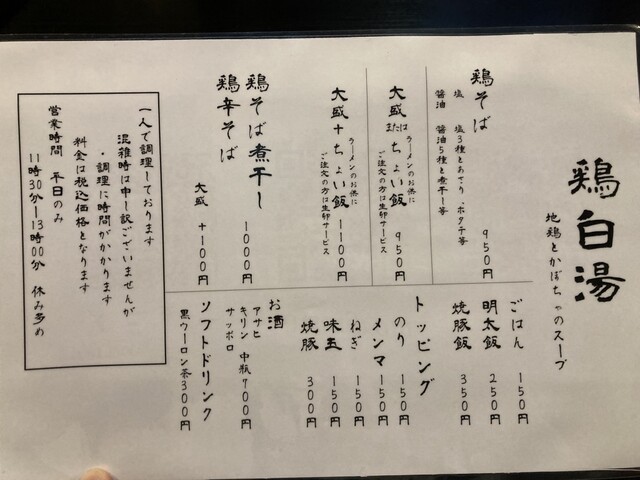 鶏白湯
地鶏とかぼちゃのスープ
鶏そば 950円
塩 塩3種とあさり、ホタテ等
醤油 醤油5種と煮干し等
大盛またはちょい飯 950円
ラーメンのお供に
ご注文の方は生卵サービス
大盛+ちょい飯 1100円
ラーメンのお供に
ご注文の方は生卵サービス
鶏そば煮干し 1000円
鶏辛そば
大盛 +100円
ごはん 150円
明太飯 250円
焼豚飯 350円
トッピング
のり 150円
メンマ 150円
ねぎ 150円
味玉 150円
焼豚 300円
お酒
アサヒ
キリン 中瓶700円
サッポロ
ソフトドリンク
黒ウーロン茶300円
一人で調理しております
混雑時は申し訳ございませんが
・調理に時間がかかります
料金は税込価格となります
営業時間 平日のみ
11時30分ー13時00分 休み多め